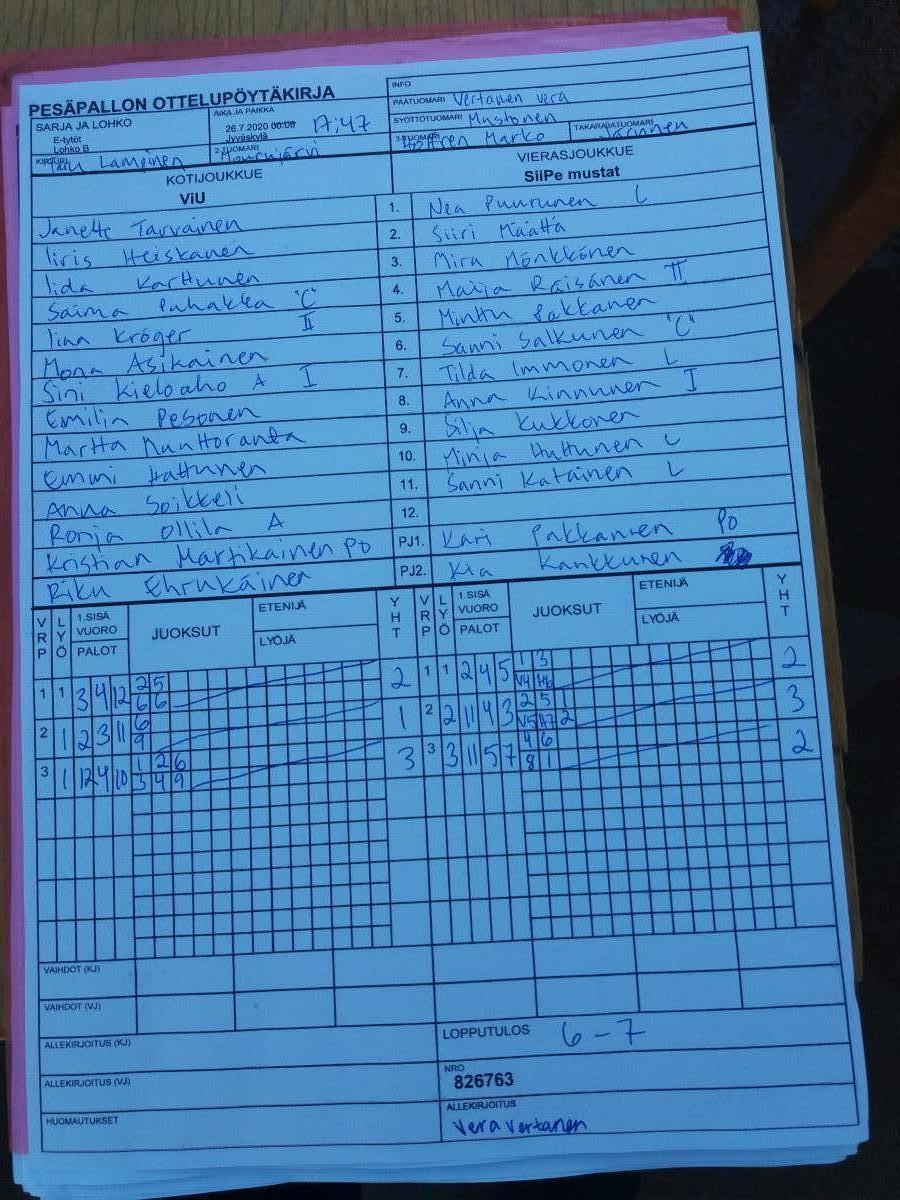 PESÄPALLON OTTELUPÖYTÄKIRJA
INFO
SARJA JA LOHKO
E-tytöt
Lohko B
AIKA JA PAIKKA
26.7.2020 00:00 17:47
Jyväskylä
PÄÄTUOMARI Vertanen Vera
SYÖTTÖTUOMARI Mustonen
3-TUOMARI Marko
TAKARAJATUOMARI
KIRJURI Lampinen
2-TUOMARI
KOTIJOUKKUE
ViU
VIERASJOUKKUE
SiiPe mustat
Janette Tarvainen 1. Nea Puurunen L
Iiris Heiskanen 2. Siiri Määttä
Iida Karttunen 3. Mira Mönkkönen
Saima Puhakka "C" 4. Maija Räisänen II
Iina Kröger II 5. Minttu Pakkanen
Mona Asikainen 6. Sanni Salkunen "C"
Sini Kieloaho A I 7. Tilda Immonen L
Emilia Pesonen 8. Anna Kinnunen I
Martta 9. Silja Kukkonen
Emmi 10. Minja Huttunen L
Anna Soikkeli 11. Sanni Katainen L
Ronja Ollila A 12.
Kristian Martikainen PO PJ1. Kari Pakkanen PO
Riku PJ2. Kia Kankkunen
VRP LYÖ 1.SISÄ VUORO PALOT JUOKSUT ETENIJÄ LYÖJÄ YHT VRP LYÖ 1.SISÄ VUORO PALOT JUOKSUT ETENIJÄ LYÖJÄ YHT
1 1 3 4 12 2 5 2 1 1 2 4 5 1 3 2
6 6 V4 H6
2 1 2 3 11 6 1 2 2 11 4 3 2 5 3
9 V5 H7 2
3 1 12 4 10 1 2 6 3 3 3 11 5 7 4 6 2
3 4 9 8 1
VAIHDOT (KJ)
VAIHDOT (VJ)
ALLEKIRJOITUS (KJ)
LOPPUTULOS 6-7
ALLEKIRJOITUS (VJ)
NRO
826763
HUOMAUTUKSET
ALLEKIRJOITUS
Vera Vertanen